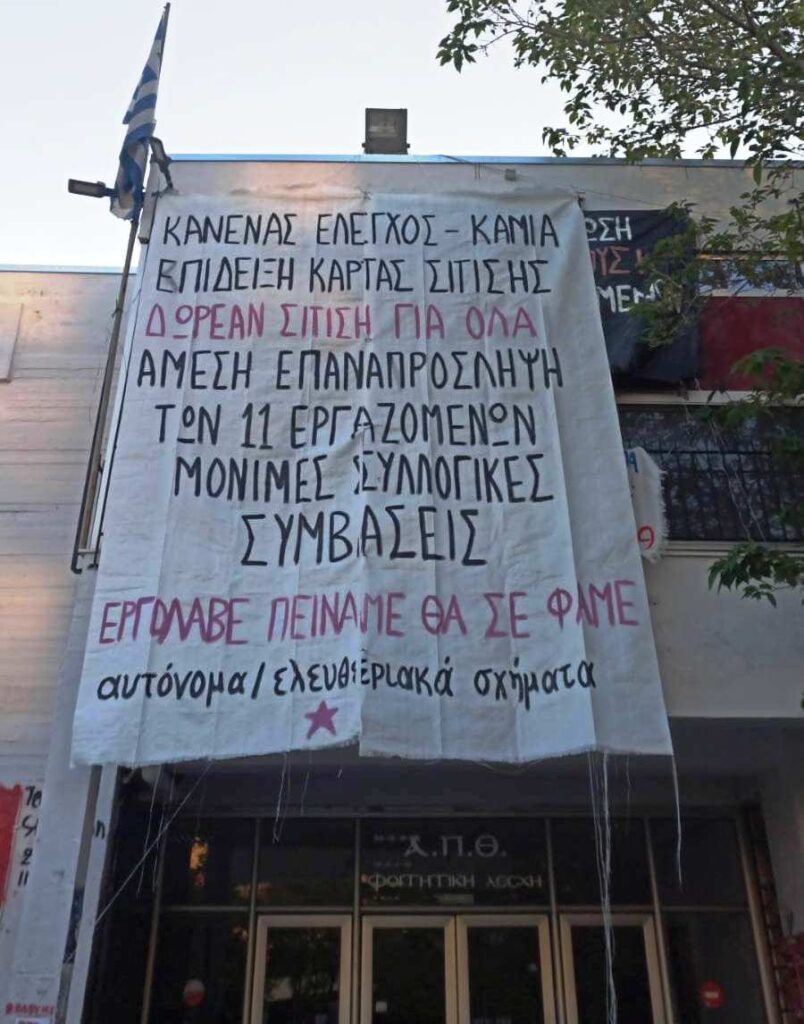 ΚΑΝΕΝΑΣ ΕΛΕΓΧΟΣ - ΚΑΜΙΑ
ΕΠΙΔΕΙΞΗ ΚΑΡΤΑΣ ΣΙΤΙΣΗΣ
ΔΩΡΕΑΝ ΣΙΤΙΣΗ ΓΙΑ ΟΛΑ
ΑΜΕΣΗ ΕΠΑΝΑΠΡΟΣΛΗΨΗ
ΤΩΝ 11 ΕΡΓΑΖΟΜΕΝΩΝ
ΜΟΝΙΜΕΣ ΣΥΛΛΟΓΙΚΕΣ
ΣΥΜΒΑΣΕΙΣ
ΕΡΓΟΛΑΒΕ ΠΕΙΝΑΜΕ ΘΑ ΣΕ ΦΑΜΕ
αυτόνομα/ελευθεριακά σχήματα
Α.Π.Θ.
ΦΟΙΤΗΤΙΚΗ ΛΕΣΧΗ